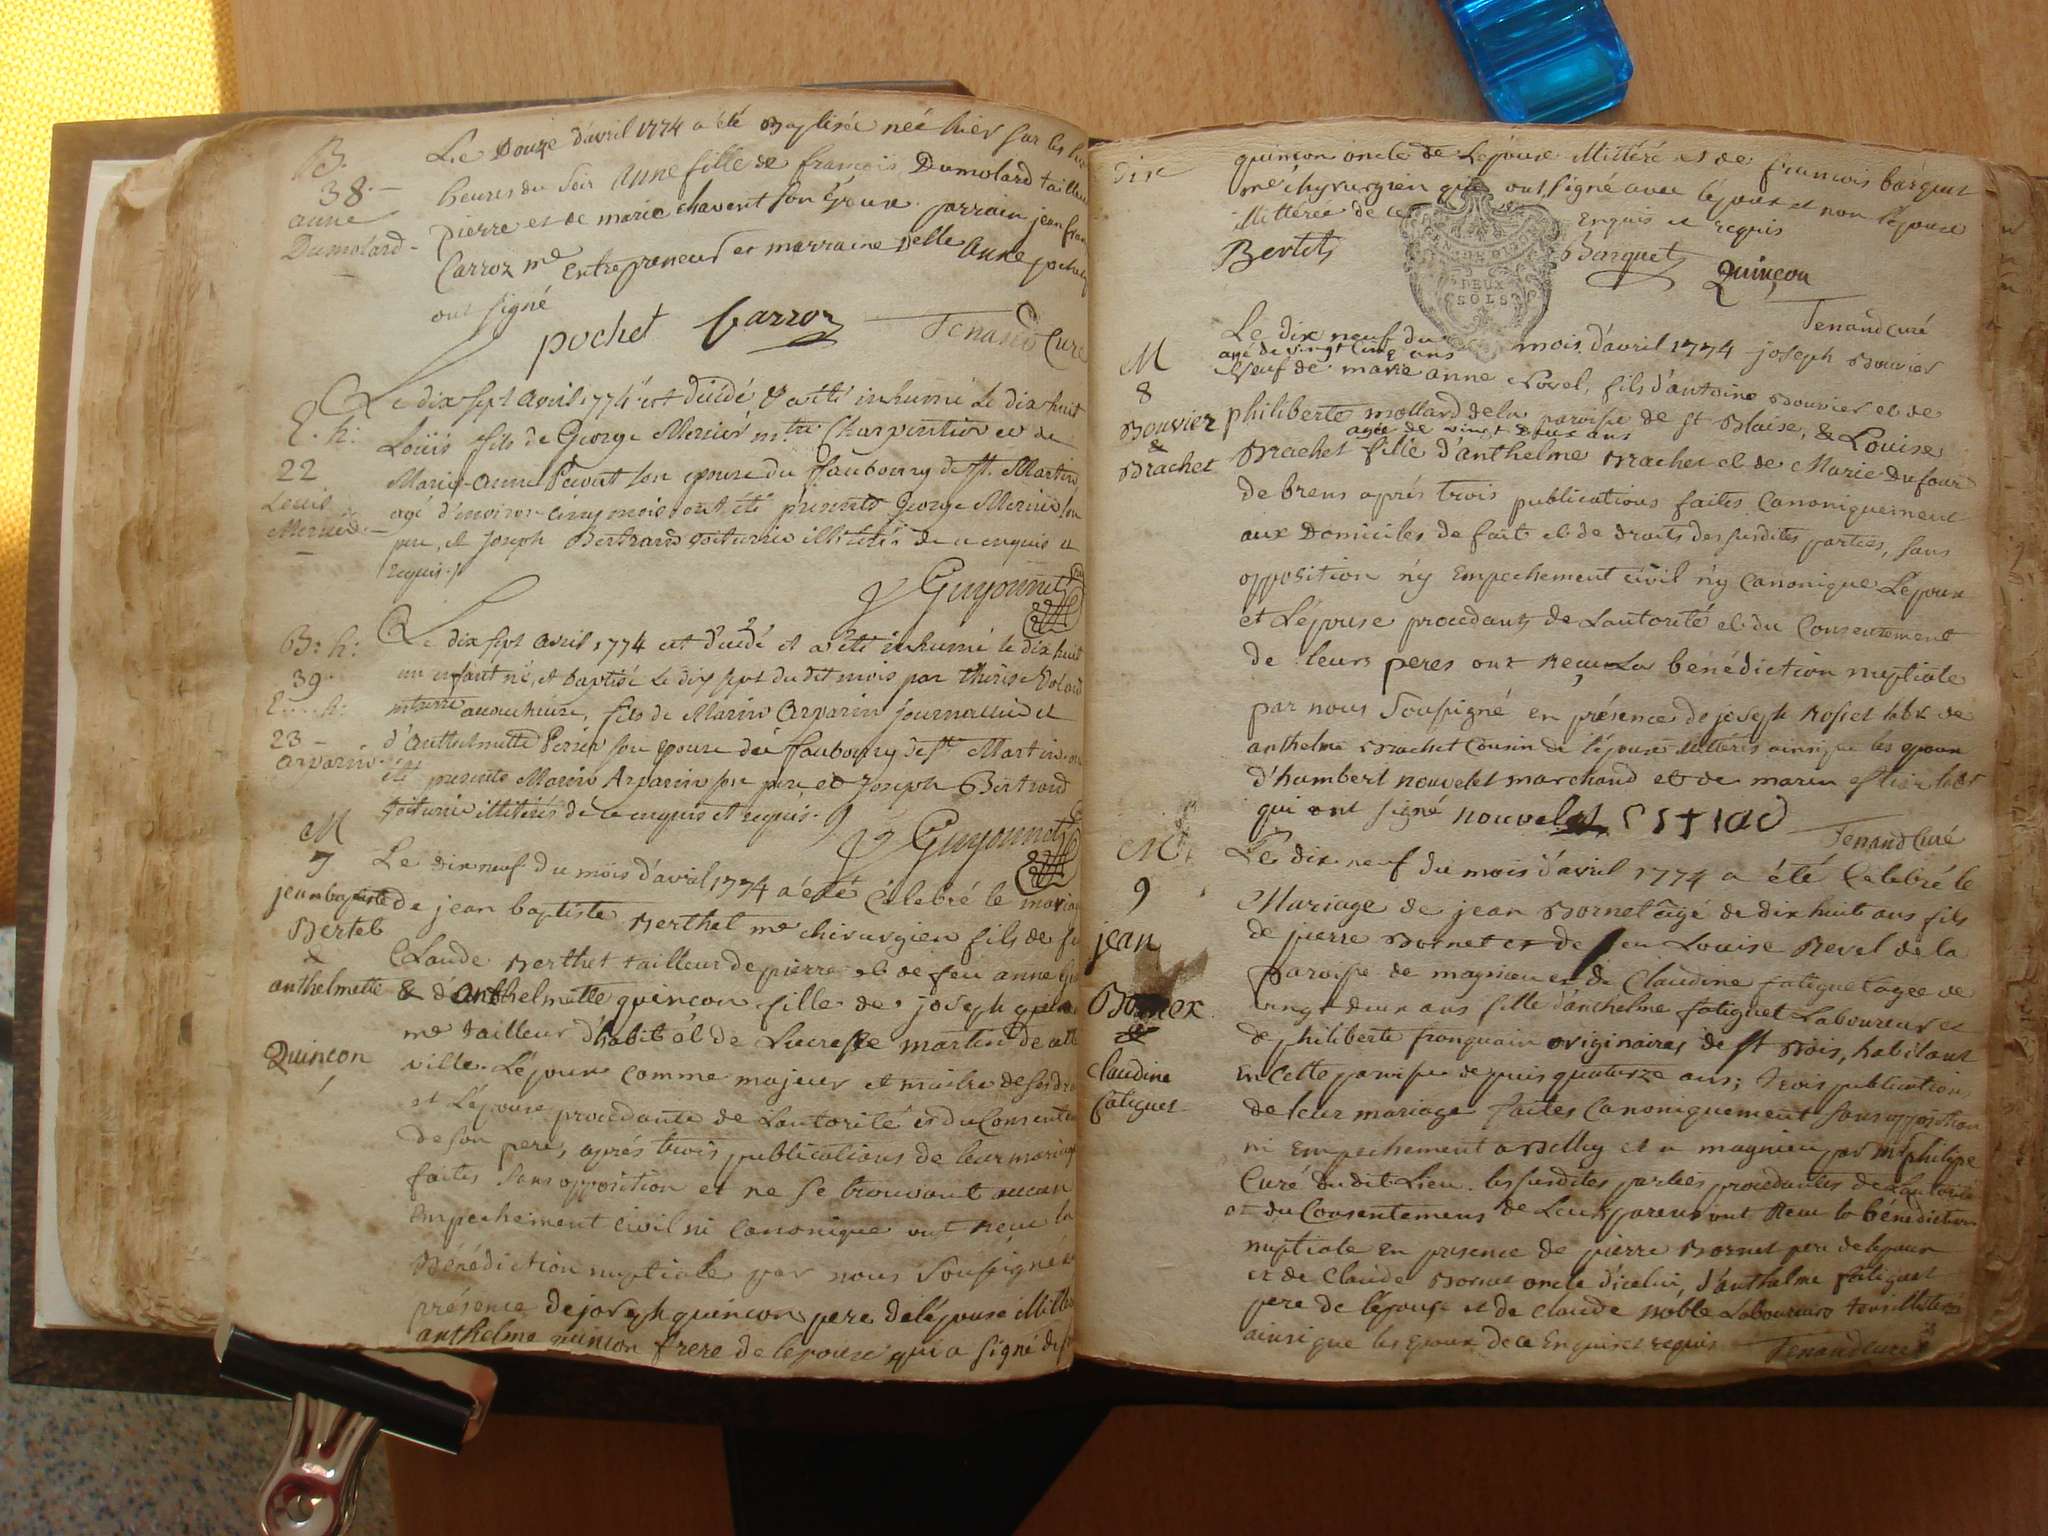 B.
38.
anne
Dumolard
Le Douze d'avril 1774 a été Baptisée née hier sur les
heures du soir Anne fille de françois Dumolard tailleur
pierre et de marie chavent son épouse. parrain jean fran
Carroz me Entrepreneur et marraine Delle Anne pochet
ont signé
pochet Carroz Tenand Curé
E. h:
22
Louis
Mernier
Le dix sept avril 1774 est décédé & a été inhumé le dix huit
Louis fils de George Mernier mtre Charpentier et de
Marie-Anne son epouse du fauxbourg de St. Martin
agé d'environ cinq mois ont été présents George Mernier son
pere, et Joseph Bertrand voiturier illitérés de ce enquis et
requis.
Guyonnet
B: h:
39
E. h:
23
arparin
Le dix sept avril 1774 est décédé et a été inhumé le dix huit
un enfant né, et baptisé le dix sept du dit mois par thérese
accoucheuse, fils de Marin Arparin journallier et
d'Anthelmette Perrier son epouse du fauxbourg de St Martin ont
été présents Marin Arparin son pere et Joseph Bertrand
voiturier illitérés de ce enquis et requis.
Guyonnet
M
7
jean baptiste
Bertet
&
anthelmette
Quincon
Le dix neuf du mois d'avril 1774 a été Célebré le mariage
de jean baptiste Berthet me chirurgien fils de feu
Claude Berthet tailleur de pierre et de feu anne
& d'anthelmette quincon fille de joseph quincon
me tailleur d'habit et de Lucresse martin de cette
ville. L'époux comme majeur et maitre de ses droits
et L'épouse procedante de Lautorité et du Consentem
de son pere, aprés trois publications de leur mariage
faites sans opposition et ne se trouvant aucun
empechement civil ni canonique ont reçu la
Bénédiction nuptiale par nous soussigné en
présence de joseph quincon pere de lépouse illitéré
anthelme quincon frere de lepouse qui a signé de
quincon oncle de Lépouse illitéré et de francois barquet
me chyrurgien qui ont signé avec lépoux et non lépouse
illitérée de ce enquis et requis
DEUX
SOLS
Bertet Barquet Quinçon
Tenand Curé
M
8
Bouvier
&
Brachet
Le dix neuf du mois d'avril 1774 joseph Bouvier
agé de vingt cinq ans
veuf de marie anne Novel, fils d'antoine Bouvier et de
philiberte mollard de la paroisse de St Blaise, & Louise
agée de vingt deux ans
Brachet fille d'anthelme Brachet et de Marie Dufour
de brens aprés trois publications faites Canoniquement
aux Domiciles de fait et de droits des susdites parties, sans
opposition n'y Empechement civil n'y Canonique L'epoux
et L'épouse procedants de Lautorité et du Consentement
de leurs peres ont reçu La bénédiction nuptiale
par nous Soussigné en présence de joseph Rosset labr de
anthelme Brachet Cousin de lépouse illitérés ainsi que les epoux
d'humbert nouvelet marchand et de marin labr
qui ont signé nouvelet
Tenand Curé
M
9
jean
Bornex
&
Claudine
fatiguet
Le dix neuf du mois d'avril 1774 a été Celebré le
Mariage de jean Bornet agé de dix huit ans fils
de pierre Bornet et de feu Louise Revel de la
paroisse de magnieu et de Claudine fatiguet agée de
vingt deux ans fille d'anthelme fatiguet Laboureur et
de philiberte franquain originaires de St Bois, habitant
en cette paroisse depuis quatorze ans; trois publications
de leur mariage faites Canoniquement sans opposition
ni Empechement a Belley et a magnieu par Mr philipe
Curé du dit Lieu. les susdites parties procedantes de Lautorité
et du Consentement de Leurs parens ont Reçu la bénédiction
nuptiale en presence de pierre Bornet pere de lepoux
et de Claude Bornet oncle d'icelui, d'anthelme fatiguet
pere de lépouse et de claude noble Laboureurs tous illitérés
ainsi que les epoux de ce Enquis et requis Tenand curé